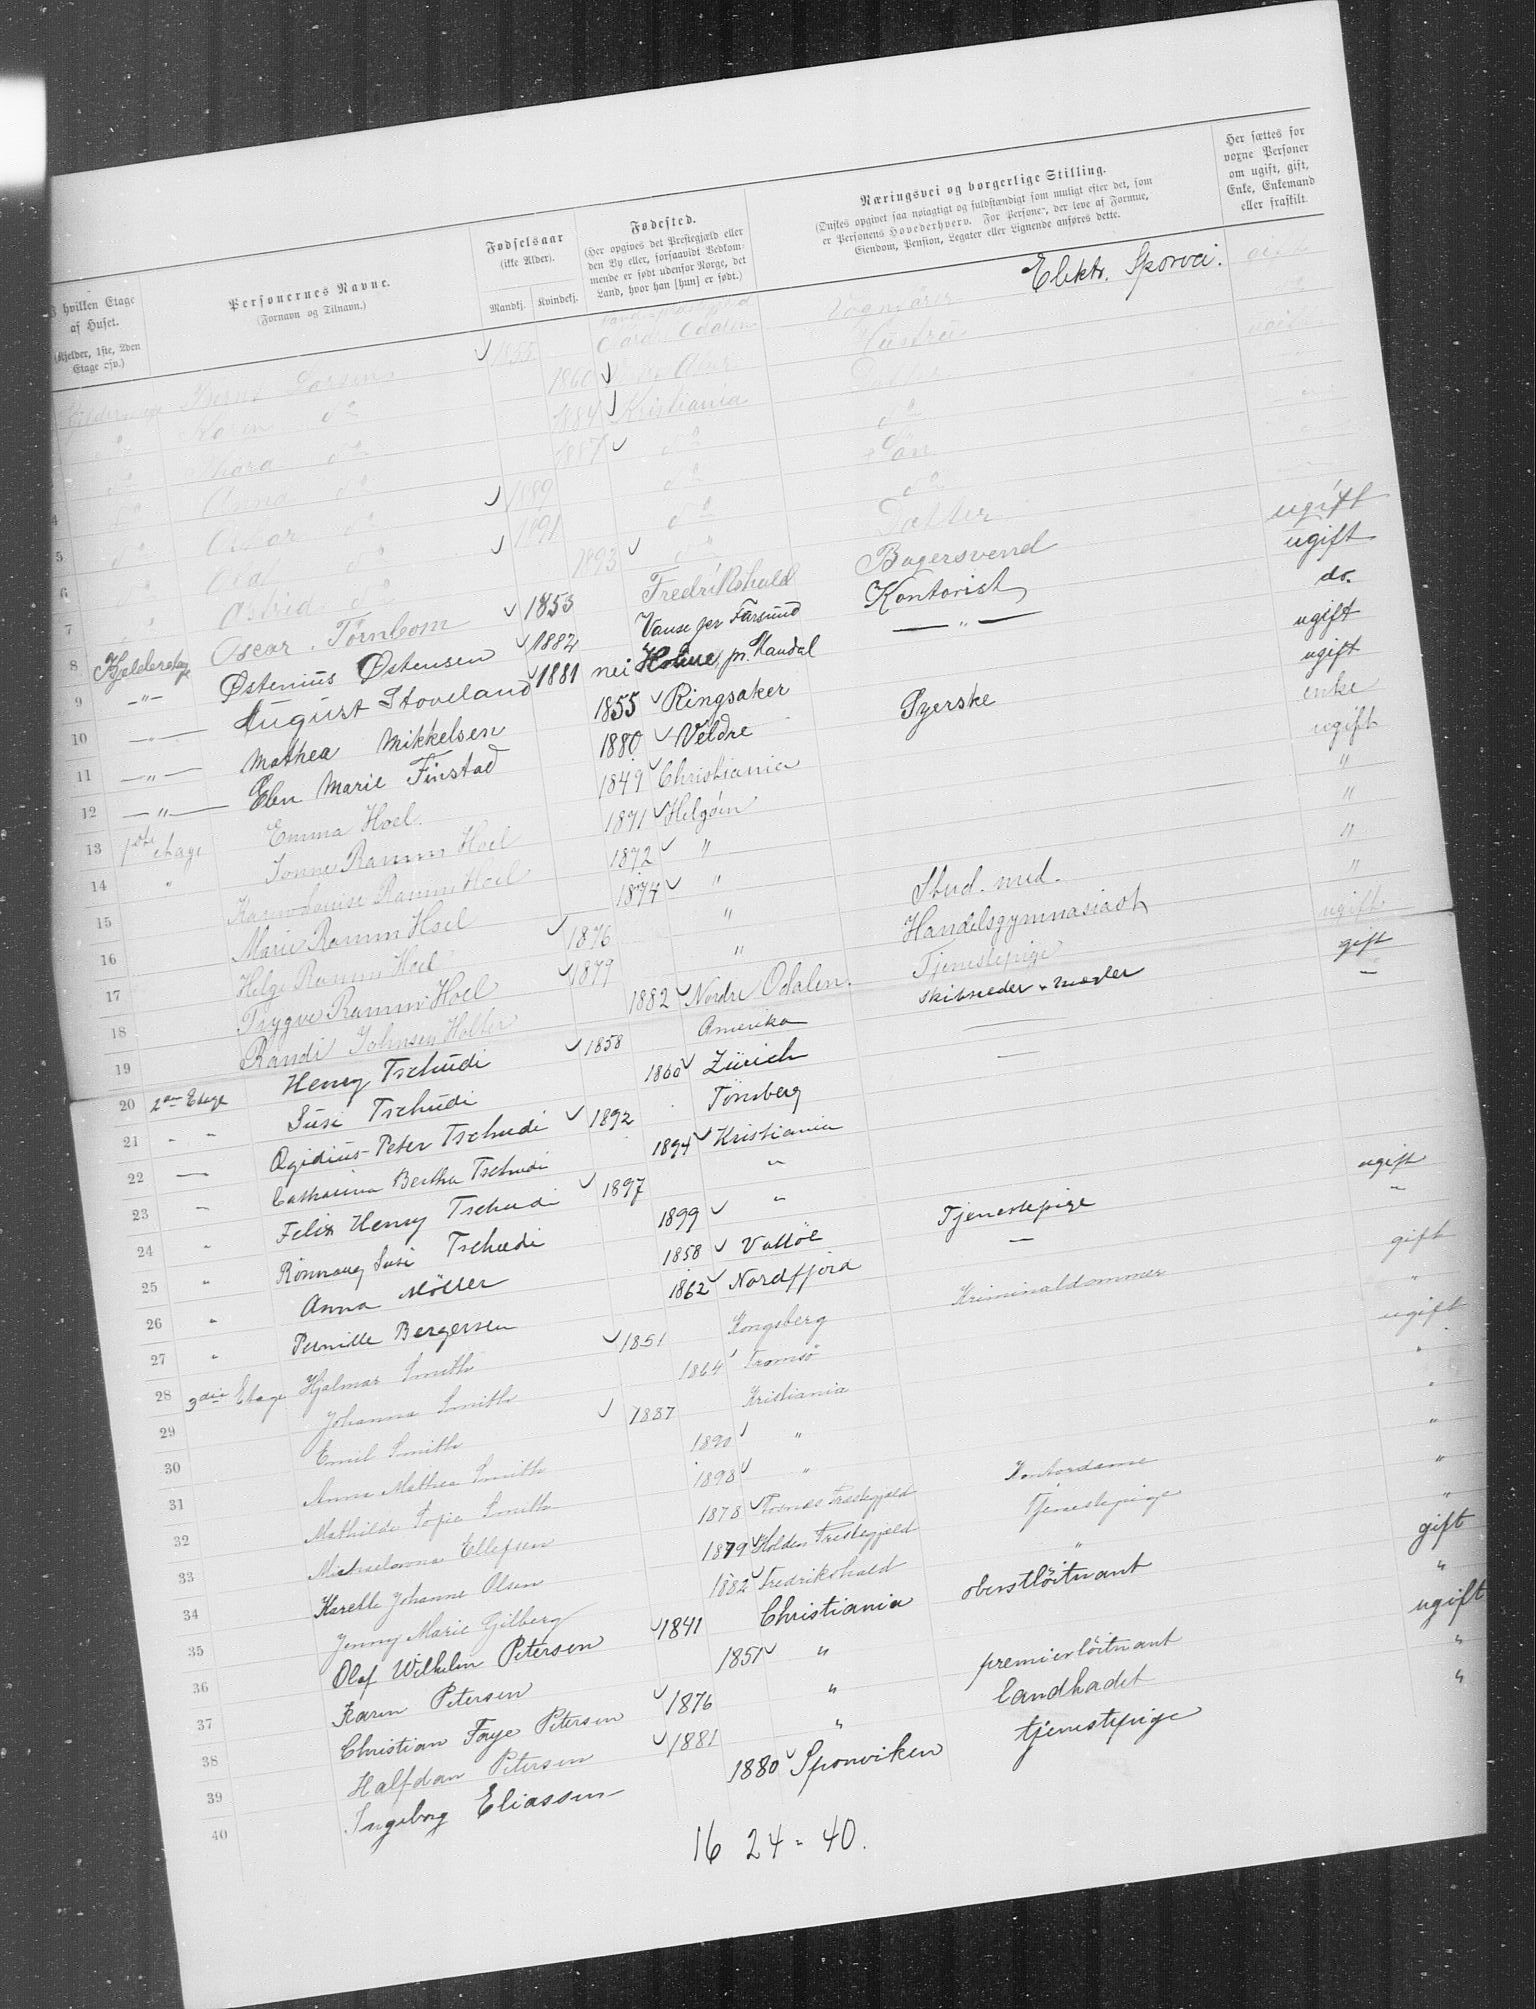 I hvilken Etage af Huset. (Kjelder, 1ste, 2den Etage osv.)
Personernes Navne. (Fornavn og Tilnavn.)
Fødselsaar (ikke Alder). Mandkj. Kvindekj.
Fødested. (Her opgives det Prestegjæld eller den By eller, forsaavidt Vedkommende er født udenfor Norge, det Land, hvor han [hun] er født.)
Næringsvei og borgerlige Stilling. (Ønskes opgivet saa nøiagtigt og fuldstændigt som muligt efter det, som er Personens Hovederhverv. For Personer, der leve af Formue, Eiendom, Pension, Legater eller Lignende anføres dette.
Her sættes for voxne Personer om ugift, gift, Enke, Enkemand eller fraskilt.
Larsen 1855 Odalen Vognfører Elektr. Sporvei. gift
Karen do 1860 Hustru
do 1884 Kristiania Datter ugift
4 do Anna do 1887 do do
5 do Oskar do 1889 do Søn
6 do Olaf do 1891 do do
7 do Astrid do 1893 do Datter
8 Kjelderetage Oscar Törnbom 1853 Fredrikshald Bagersvend ugift
9 -"- Østenius Østensen 1882 Vanse per Farsund Kontorist ugift
10 -"- August Stoveland 1881 nei Holme, pr. Mandal -"- do.
11 -"- Mathea Mikkelsen 1855 Ringsaker ugift
12 -"- Elen Marie Finstad 1880 Veldre Syerske ugift
13 1ste etage Emma Hoel. 1849 Christiania enke
14 " Ramm Hoel 1871 Helgöen ugift
15 Karen Louise Ramm Hoel 1872 " "
16 Marie Ramm Hoel 1874 " "
17 Helge Ramm Hoel 1876 " Stud. med. "
18 Trygve Ramm Hoel 1879 " Handelsgymnasiast "
19 Randi Johnsen Holter 1882 Nordre Odalen. Tjenestepige ugift
20 2den Etage Henry Tschudi 1858 Amerika Skibsreder & mægler gift
21 " " Susi Tschudi 1860 Zürich — "
22 — Ægidius Peter Tschudi 1892 Tönsberg —
23 " Catharina Bertha Tschudi 1894 Kristiania
24 " Felix Henry Tschudi 1897 "
25 " Rönnaug Susi Tschudi 1899 "
26 " Anna Möller 1858 Vallöe Tjenestepige ugift
27 " Pernille Bergersen 1862 Nordfjord — "
28 3die Etage Hjalmar Smith 1851 Kongsberg Kriminaldommer gift
29 Johanna Smith 1864 Tromsö "
30 Emil Smith 1887 Kristiania ugift
31 Anna Mathea Smith 1890 " "
32 Mathilde Sofie Smith 1898 " "
33 Ellefsen 1878 Prestegjeld Kontordame "
34 Karelle Johanne Olsen 1879 Holden Prestegjeld Tjenestepige "
35 Jenny Marie Gilberg 1882 Fredrikshald " "
36 Olaf Wilhelm Petersen 1841 Christiania oberstlöitnant gift
37 Karen Petersen 1851 " "
38 Christian Faye Petersen 1876 " premierlöitnant ugift
39 Halfdan Petersen 1881 " Landkadet "
40 Ingeborg Eliassen 1880 Sponviken tjenestepige "
16 24 = 40.